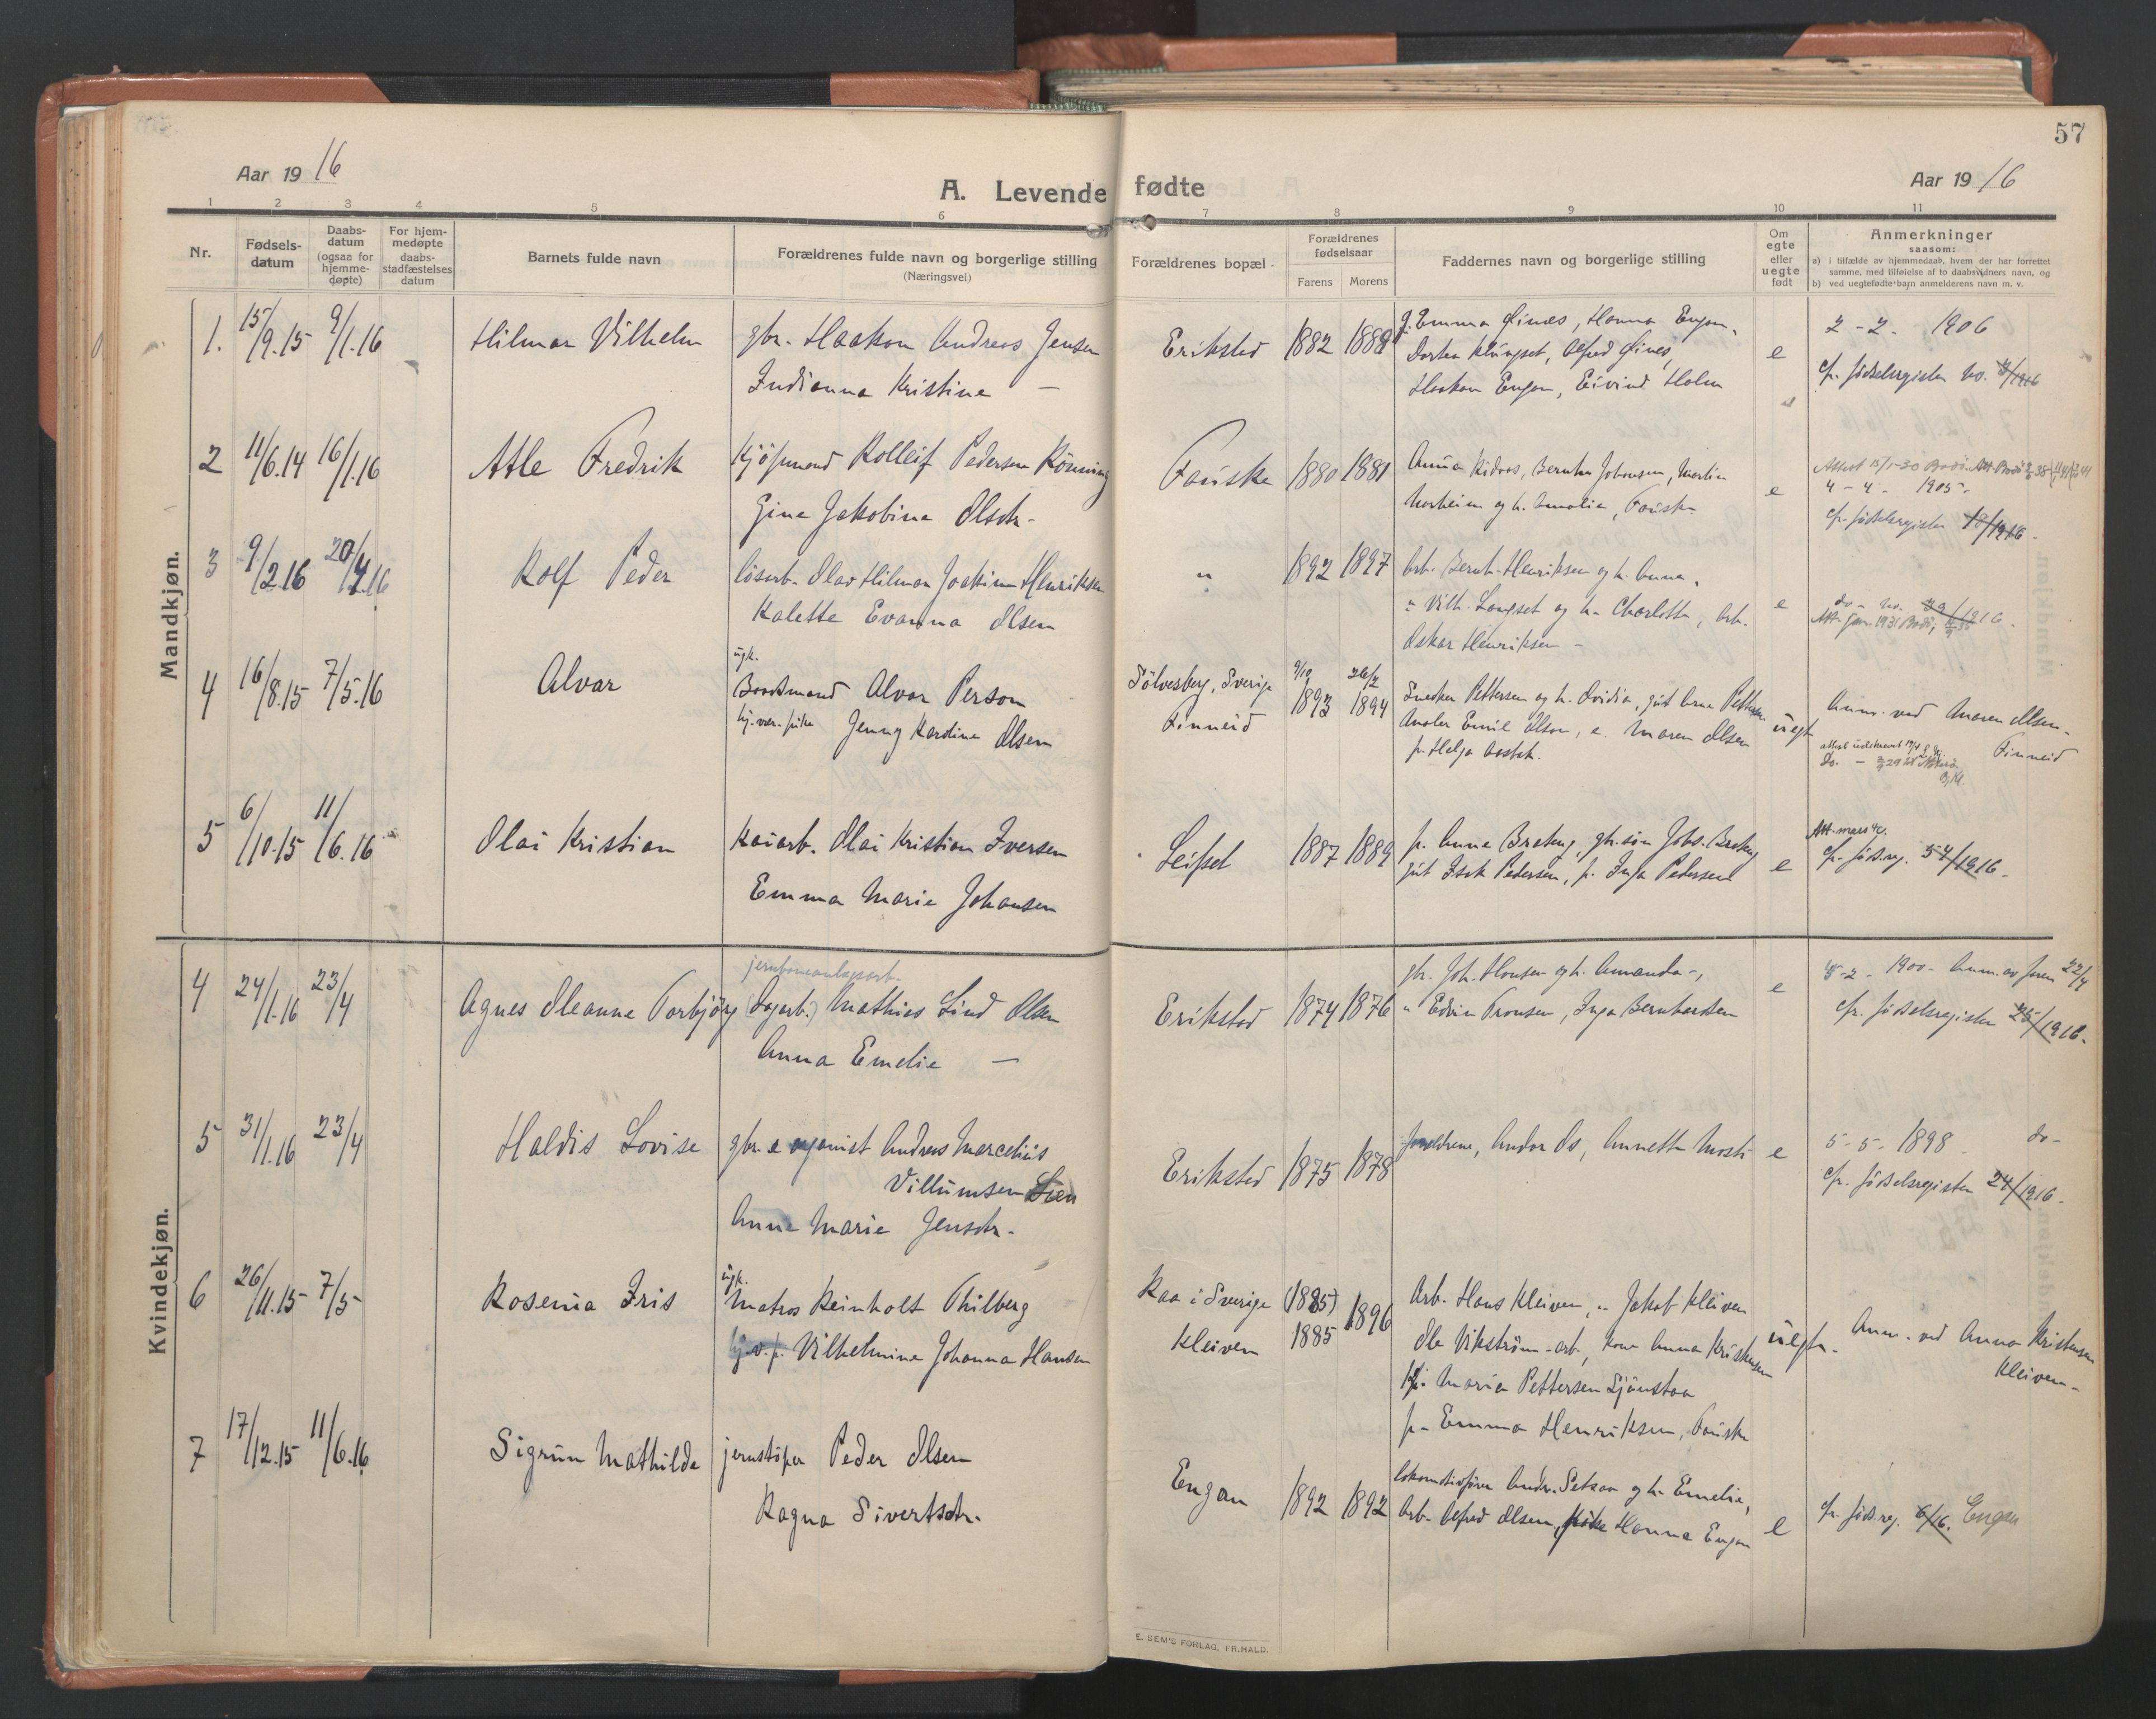 57
Aar 1916
A. Levende fødte
Aar 1916
1 2 3 4 5 6 7 8 9 10 11
Nr.
Fødsels-
datum
Daabs-
datum
(ogsaa for
hjemme-
døpte)
For hjem-
medøpte
daabs-
stadfæstelses
datum
Barnets fulde navn
Forældrenes fulde navn og borgerlige stilling
(Næringsvei)
Forældrenes bopæl.
Forældrenes
fødselsaar
Farens Morens
Faddernes navn og borgerlige stilling
Om
egte
eller
uegte
født
Anmerkninger
saasom:
a) i tilfælde av hjemmedaab, hvem der har forrettet
samme, med tilføielse af to daabsvidners navn, og
b) ved uegtefødte barn anmelderens navn m. v.
Mandkjøn.
1. 15/9.15 9/1.16 Hilmar Vilhelm gbr. Haakon Andreas Jensen
Indianna Kristine —
Erikstad 1882 1889
Emma Finés, Hanna Engan,
Dortea Klungset, Alfred Finés,
Haakon Engan, Eivind Holm
e
2-2- 1906
cfr. fødselsregister no. 3/1916
2 11/6.14 16/1.16 Atle Fredrik Kjøpmand Rolleif Pedersen Rönning
Gine Jakobine Olsdtr.
Fauske 1880 1881
Anna Kidaas, Bernha Johansen, Martin
Norheim og h. Amalie, Fauske
e
Attest 15/1-30 Bodö.
4-4- 1905-
cfr. fødselsregister 18/1916.
3 9/2.16 20/4.16 Rolf Peder lösarb. Olav Hilmar Joakim Henriksen
Kalette Evanna Olsen
" 1892 1897
Arb. Bernh. Henriksen og h. Anna,
" Vilh. Langset og h. Charlotte, Arb.
Oskar Henriksen -
e
do- no. 29/1916.
Att. Jan. 1931 Bodö,
4 16/8.15 7/5.16 Alvar
ugk.
Baadsmand Alvar Person
hj.vær. pike Jenny Karoline Olsen
Sölvesberg, Sverige
Finneid
9/10 1893 26/2 1894
Snekker Pettersen og h. Ovidia, gut Arne Pettersen
Anoler Emil Olsen, e. Maren Olsen
p. Helga
uegt.
Anm. ved Maren Olsen-
Finneid
5 6/10.15 11/6.16 Olai Kristian Kaiarb. Olai Kristian Iversen
Emma Marie Johansen
Leifset 1887 1889
p. Anna Brateng, gbr.sön Johs. Brateng
gut Isak Pedersen, p. Inga Pedersen
e
Att. mars 40.
cfr. føds.reg. 54/1916.
Kvindekjøn.
4 24/1.16 23/4 Agnes Oleanne Torbjörg
jernbaneanlægsarb.
(Dagarb.) Mathias Lind Olsen
Anna Emelie —
Erikstad 1874 1876
gbr. Joh. Hansen og h. Amanda -,
" Edvin Fransen, Inga Bernhardsen
e
8-2- 1900- Anm. av faren 22/4
cfr. fødselsregister 25/1916.
5 31/1.16 23/4 Haldis Lovise gbr. & organist Andreas Marcelius
Villumsen Lien
Anne Marie Jensdtr.
Erikstad 1875 1878
Forældrene, Andor do, Annette Mosti
e
5-5- 1898 do-
cfr. fødselsregister 24/1916.
6 26/11.15 7/5 Rosenia Iris
ugk.
Matros Reinholt Thilberg
hj.v.p. Vilhelmine Johanna Hansen
Raa i Sverige
Kleiven
(1885)
1885
1896
Arb. Hans Kleiven, " Jakob Kleiven
Ole Vikström - arb, kone Anna Kristensen
Maria Pettersen Sjönstaa
p. Emma Henriksen, Fauske
uegte.
Anm. ved Anna Kristensen
Kleiven-
7 17/12.15 11/6.16 Sigrun Mathilde jernstöper Peder Olsen
Ragna Sivertsdtr.
Engan 1892 1892
lokomotivförer Andr. Setsaa og h. Emelie,
Arb. Alfred Olsen, pike Hanna Engan
e
cfr. føds.reg. 6/16. Engan
E. SEM'S FORLAG, FR.HALD.